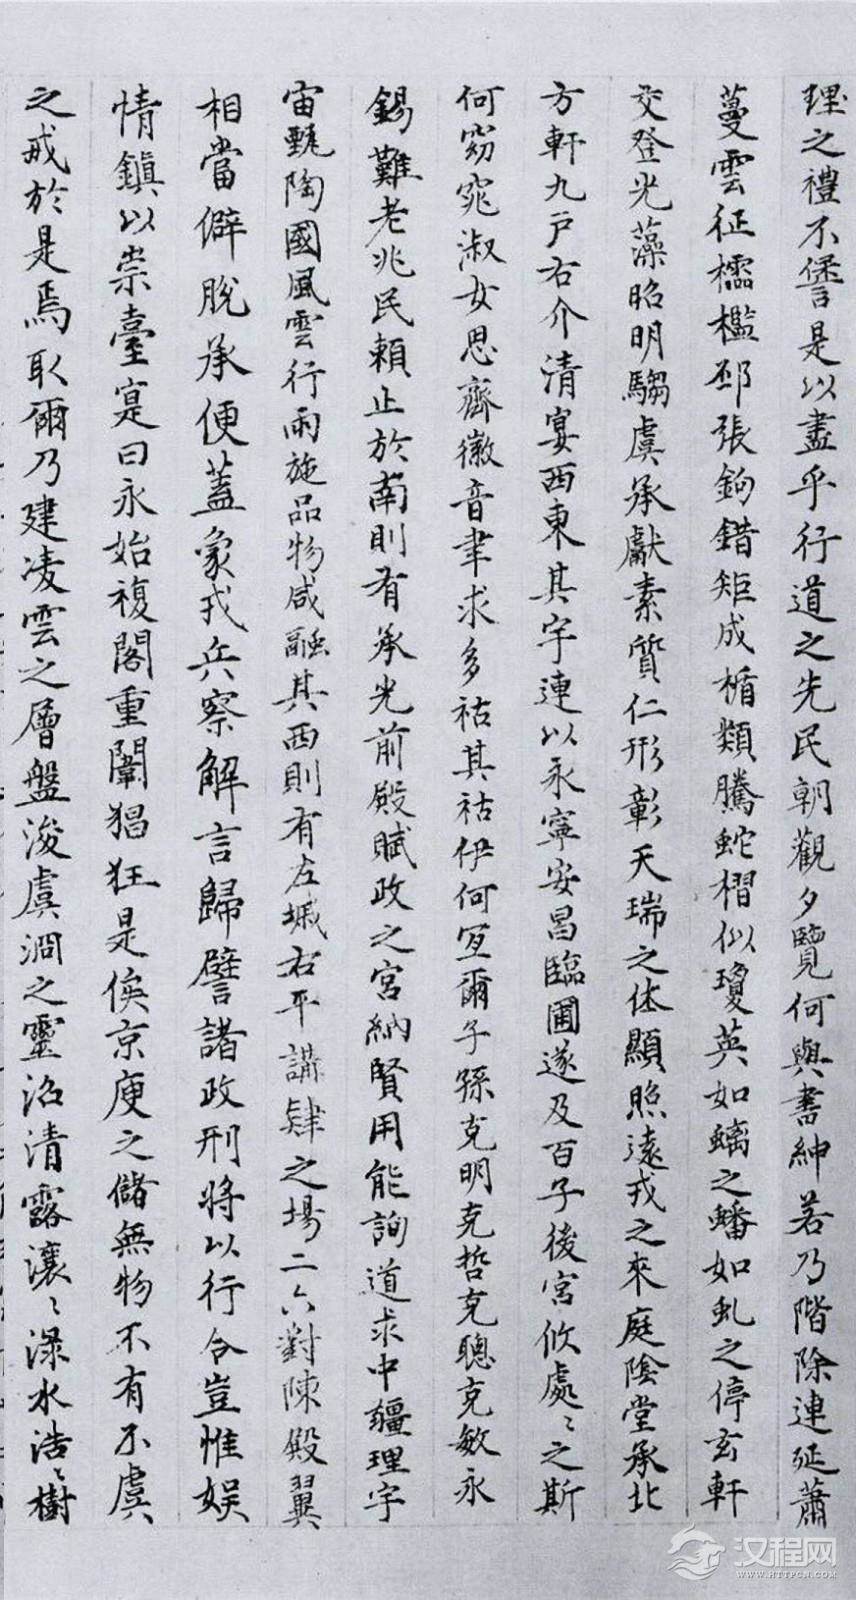 理之禮不愆是以盡乎行道之先民朝觀夕覽何與書紳若乃階除連延蕭
蔓雲征櫺檻邳張鉤錯矩成楯類騰蛇槢似瓊英如螭之蟠如虬之停玄軒
交登光藻昭明騶虞承獻素質仁形彰天瑞之休顯照遠戎之來庭陰堂承北
方軒九戶右介清宴西東其宇連以永寧安昌臨圃遂及百子後宮攸處〻之斯
何窈窕淑女思齊徽音聿求多祜其祜伊何宜爾子孫克明克哲克聰克敏永
錫難老兆民賴止於南則有承光前殿賦政之宮納賢用能詢道求中疆理宇
宙甄陶國風雲行雨施品物咸融其西則有左墄右平講肄之場二六對陳殿翼
相當僻脫承便蓋象戎兵察解言歸譬諸政刑將以行令豈惟娛
情鎮以崇臺寔曰永始複閣重闈猖狂是俟京庾之儲無物不有不虞
之戒於是焉取爾乃建凌雲之層盤浚虞淵之靈沼清露瀼〻淥水浩〻樹
汉程网
WWW.HTTPCN.COM